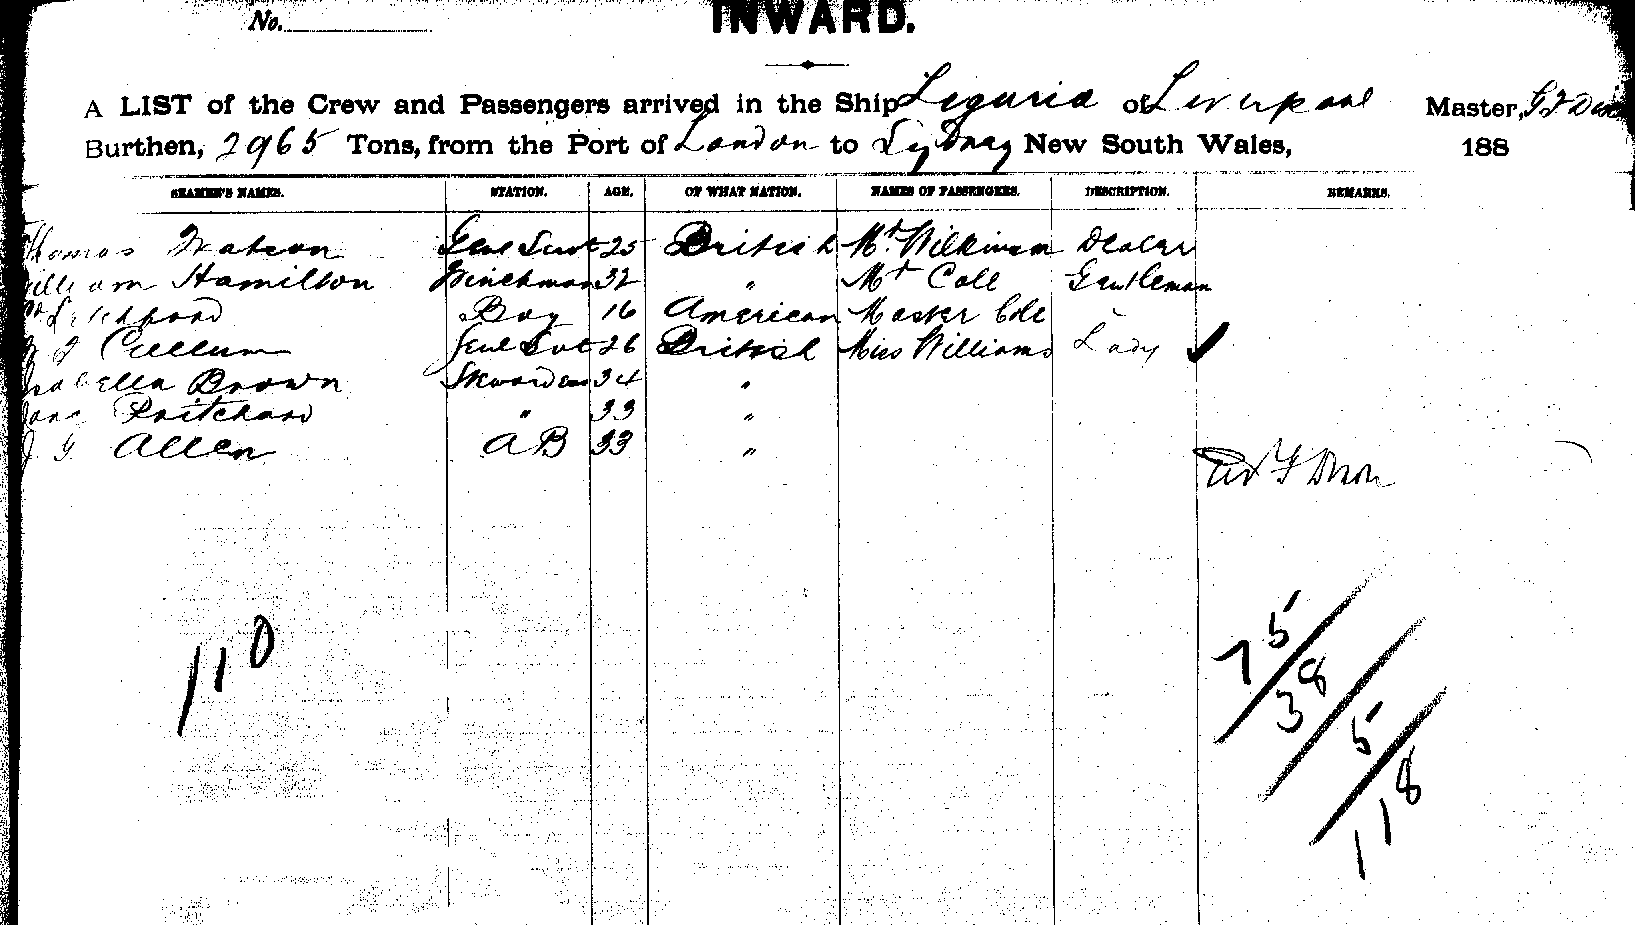 No.
INWARD.
A LIST of the Crew and Passengers arrived in the Ship Liguria of Liverpool Master, G F
Burthen, 2965 Tons, from the Port of London to Sydney New South Wales, 188
SEAMEN'S NAMES. STATION. AGE. OF WHAT NATION. NAMES OF PASSENGERS. DESCRIPTION. REMARKS.
Thomas Watson Genl Servt 25 British Mr Wilkinson Dealer
William Hamilton Winchman 32 " Mr Cole Gentleman
Boy 16 American Master Cole
Cullum Genl Svt 26 British Miss Williams Lady
Isabella Brown Stewardess 34 "
Jane Pritchard " 33 "
J G Allen AB 33 "
110
75
38
5
118